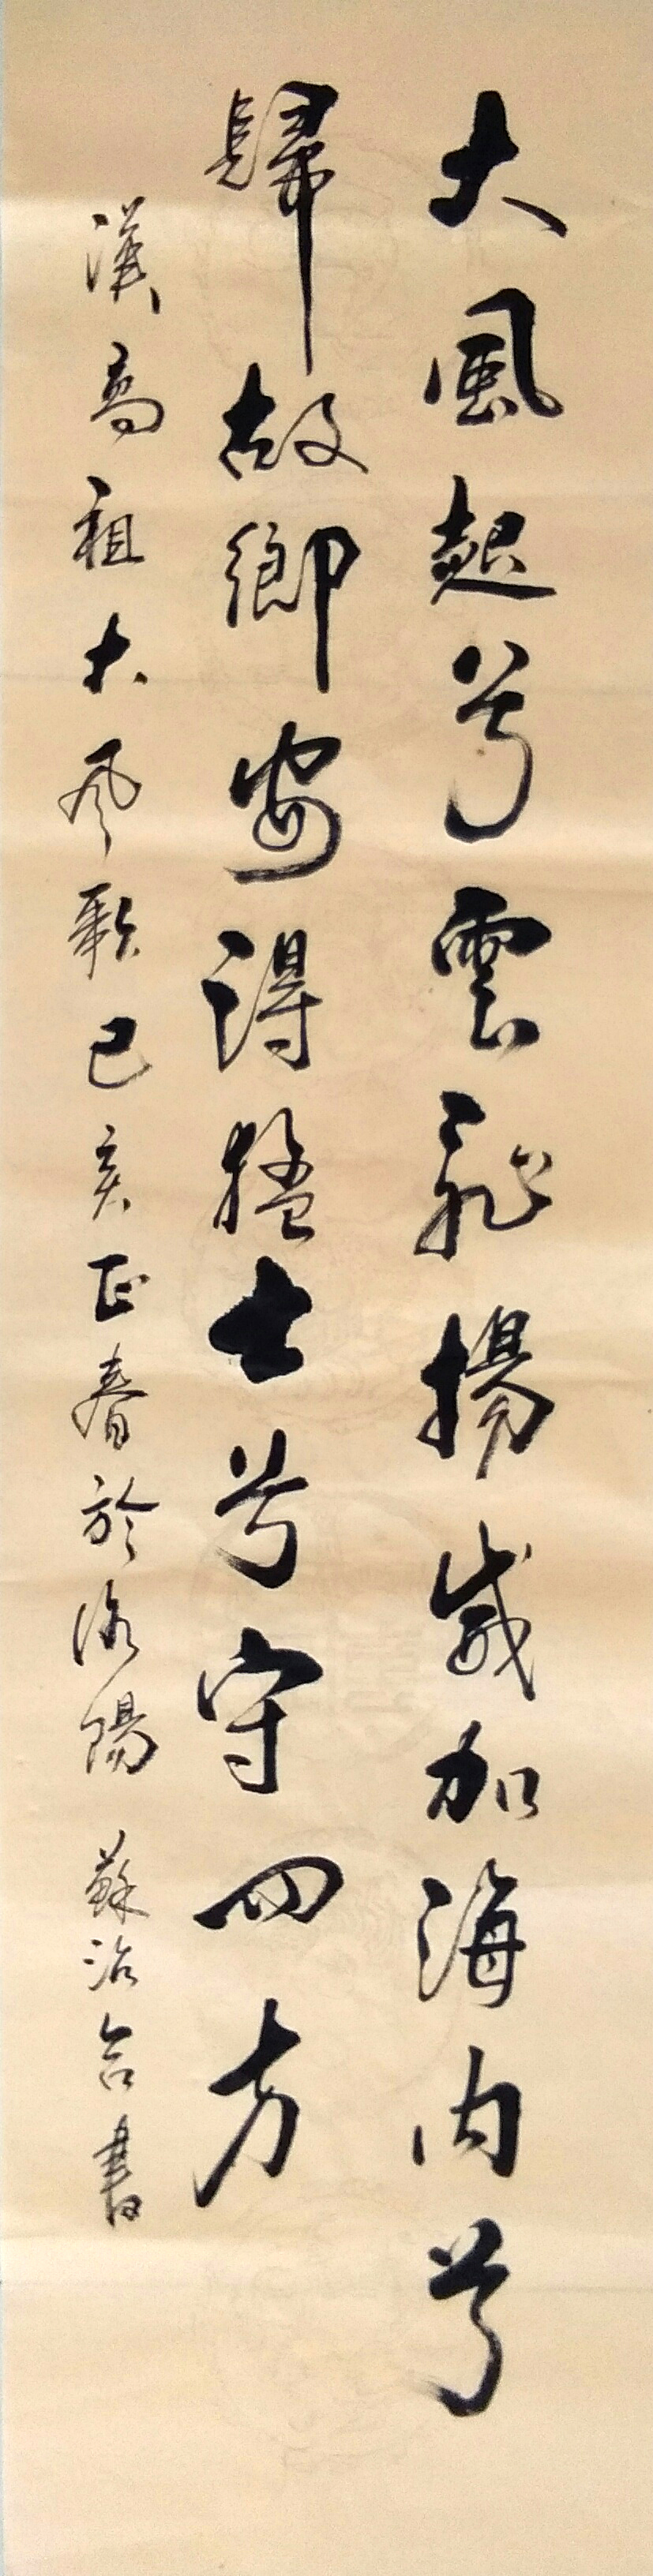 大風起兮雲飛揚威加海內兮
歸故鄉安得猛士兮守四方
漢高祖大風歌己亥正春於洛陽 蘇治合書